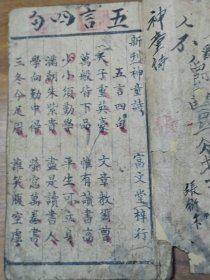 五言四句
新刊神童詩 富文堂梓行
五言四句
天子重英豪 文章教爾曹
萬般皆下品 惟有讀書高
少小須勤學 可立身
滿朝朱紫貴 盡是讀書人
學向勤中得 螢窓萬卷書
三冬今足用 誰笑腹空虛
神童詩
人不
張